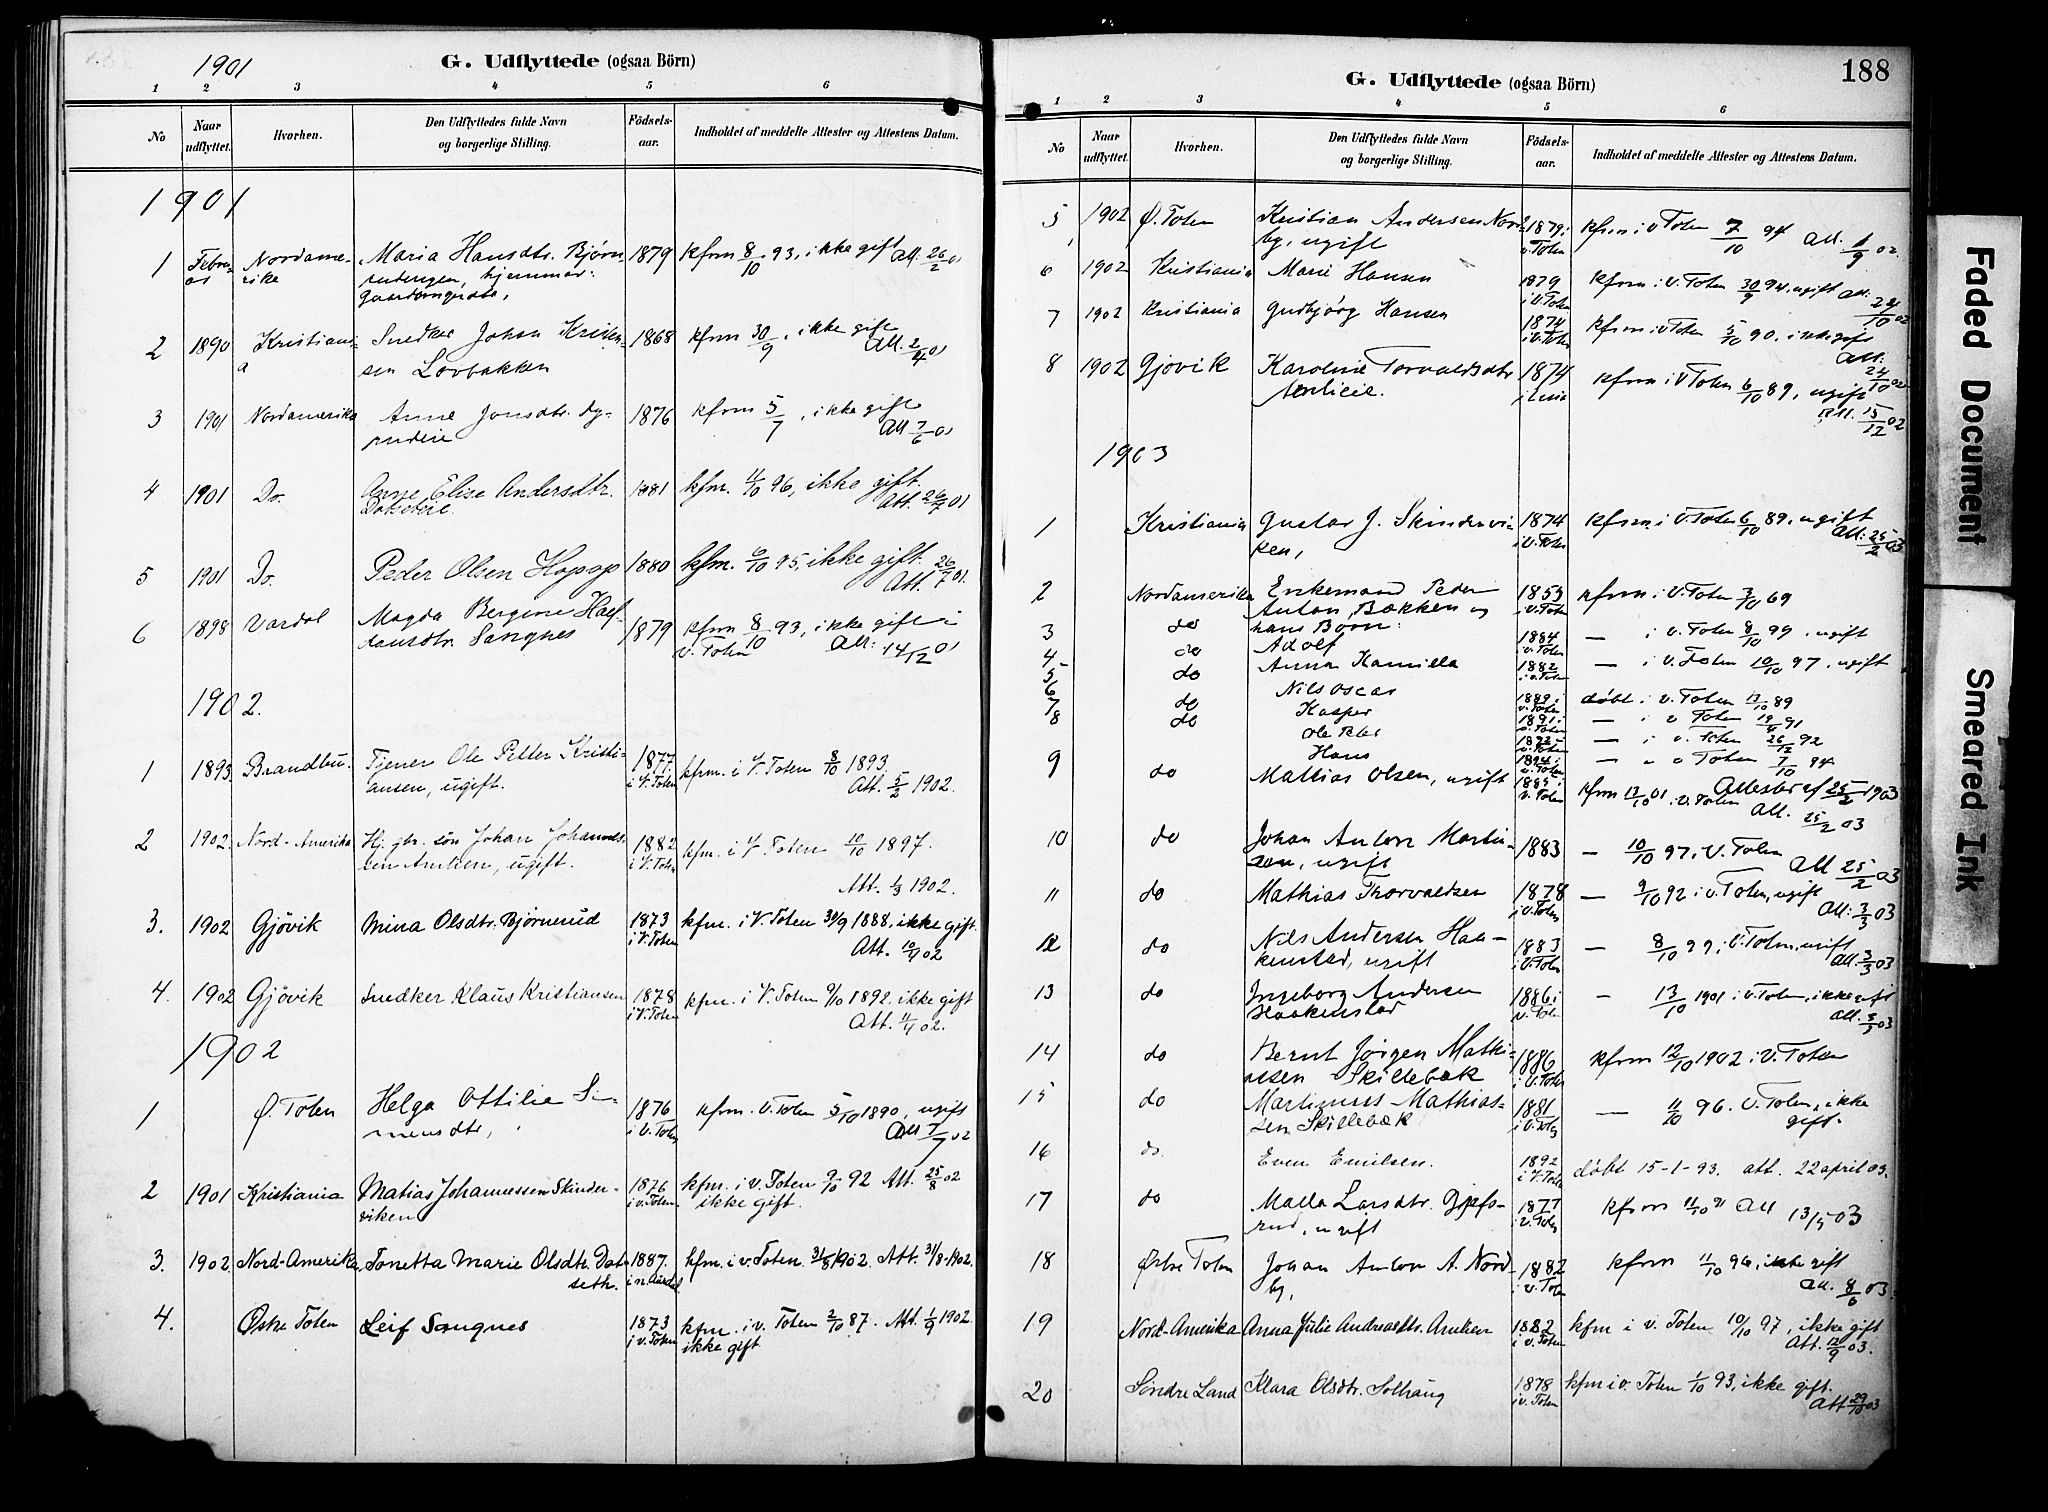 1901
G. Udflyttede (ogsaa Börn)
1 2 3 4 5 6
No
Naar udflyttet.
Hvorhen.
Den Udflyttedes fulde Navn og borgerlige Stilling.
Födsels-aar.
Indholdet af meddelte Attester og Attestens Datum.
1901
1 Febru. 01 Nordamerika Maria Hansdtr. Bjørn 1879 kfrm 8/10 93, ikke gift All. 26/2 01
gaardmgsdtr,
2 1890 Kristiania Snedker Johan Kristensen Lovbakken 1868 kfrm 30/9, ikke gift All. 2/4 01
3 1901 Nordamerika Anne Jonsdtr. 1876 kfrm 5/7, ikke gift All 7/6 01
4 1901 Do. Anne Elise Andersdtr. 1881 kfm. 11/10 96, ikke gift. Att. 26/7 01
5 1901 Do. Peder Olsen 1880 kfm. 6/10 95, ikke gift. Att. 26/7 01.
6 1898 Vardal Magda Bergine Halfdansdtr. Sangnes 1879 kfrm 8/10 93, ikke gift i v. Toten All: 14/12 01
1902.
1 1893. Brandbu. Tjener Ole Petter Kristiansen, ugift. 1877 i V. Toten kfrm. i V. Toten 8/10 1893 Att. 5/2 1902.
2 1902. Nord-Amerika Hj. gbr. søn Johan Johannessen Amlien, ugift. 1882 i V. Toten kfm. i V. Toten 10/10 1897. Att. 1/3 1902.
3. 1902 Gjövik Mina Olsdtr. Bjørnerud 1873 i V. Toten kfm. i V. Toten 30/9 1888, ikke gift. Att. 10/4 02
4. 1902 Gjövik Snedker Klaus Kristiansen 1878 i V. Toten kfm. i V. Toten 9/10 1892. ikke gift Att. 11/4 02.
1902
1 Ø. Toten Helga Ottilie Simensdtr, 1876 i V. Toten kfrm. V. Toten 5/10 1890, ugift All 7/7 02
2 1901 Kristiania Matias Johannessen Skinderviken 1876 i v. Toten kfm. i v. Toten 9/10 92 Att. 25/8 02 ikke gift.
3. 1902. Nord-Amerika Tonetta Marie Olsdtr. Dalseth. 1887. kfm. i v. Toten 31/8 1902. Att. 31/8-1902.
4. Østre Toten Leif Sangnes 1873 i v. Toten kfm. i v. Toten 2/10 87. Att. 1/9 1902. ikke gift
188
G. Udflyttede (ogsaa Börn)
1 2 3 4 5 6
No
Naar udflyttet.
Hvorhen.
Den Udflyttedes fulde Navn og borgerlige Stilling.
Födsels-aar.
Indholdet af meddelte Attester og Attestens Datum.
5 1902 Ø. Toten Kristian Andersen Nordby, ugift 1879 i v. Toten kfrm i v Toten 7/10 94 All. 1/9 02
6 1902 Kristiania Marie Hansen 1879 i V. Toten kfrm i v. Toten 30/9 94, ugift All. 24/10 02
7 1902 Kristiania Gudbjørg Hansen 1874 i V. Toten kfrm i v Toten 5/10 90. ikke gift All: 24/10 02
8 1902 Gjøvik Karoline Torvaldsdtr 1874 kfrm i V Toten 6/10 89, ugift All. 15/12 02
1903
1 Kristiania Gustav J. Skinderviken, 1874 i V. Toten kfrm i V. Toten 6/10 89, ugift All: 25/2 03
2 Nordamerika Enkemand Peder Anton Bækken og 1853 i V. Toten kfrm i V. Toten 3/10 69
hans Børn:
3 do Adolf 1884 i v. Toten — i v. Toten 8/10 99. ugift
4 do Anna Kamilla 1882 i v. Toten — i v. Toten 10/10 97. ugift
5 do Nils Oscar 1889 i v. Toten døbt i v. Toten 13/10 89
6 Kasper 1891 i v. Toten — i v Toten 19/4 91
7 do Ole Peter 1892 i v. Toten — i v. Toten 26/12 92
8 do Hans 1894 i v. Toten — " v Toten 7/10 94
Attester af 25/2 1903
9 do Mathias Olsen, ugift 1885 i v. Toten kfrm 13/10 01. i v. Toten All. 25/2 03
10 do Johan Anton Martinsen, ugift 1883 — 10/10 97, V. Toten All 25/2 03
11 do Mathias Thorvaldsen 1878 i V. Toten — 9/10 92 i v. Toten, ugift All: 3/3 03
12 do Nils Andersen Haakenstad, ugift 1883 i V. Toten — 8/10 99, i V. Toten, ugift All. 3/3 03
13 do Ingeborg Andersen Haakenstad 1886 i v. Toten — 13/10 1901 i v. Toten, ikke gift All. 3/3 03
14 do Bernt Jörgen Mathiassen Skillebæk 1886 i V. Toten kfrm 12/10 1902 i V. Toten
15 do Martinus Mathiassen Skillebæk 1881 i V. Toten — 11/10 96. V. Toten, ikke gift.
16 do. Even Emilsen. 1892 i V. Toten döbt 15-1-93. att. 22 april 03.
17 do Malla Larsdtr. ugift 1877 i V. Toten kfrm 11/10 91 All 13/5 03
18 Østre Toten Johan Anton A. Nordby, 1882 i v. Toten kfrm 11/10 96, ikke gift All. 8/6 03.
19 Nord-Amerika Anna Julie Andreasdtr. Amlien 1882 i v. Toten kfm i v. Toten 10/10 97, ikke gift Att. 12/9 03.
20 Söndre Land Klara Olsdtr. Solhaug 1878 i v. Toten kfm i v. Toten 1/10 93, ikke gift. Att 29/10 03
Faded Document
Smeared Ink